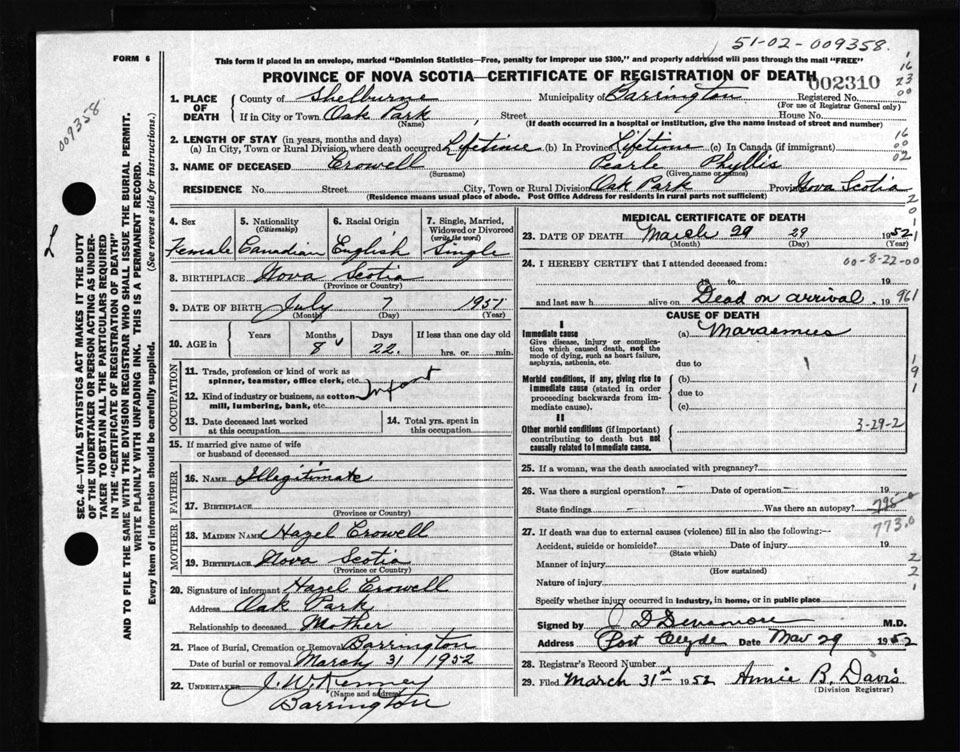 51-02-009358.
FORM 6
This form if placed in an envelope, marked "Dominion Statistics—Free, penalty for improper use $300," and properly addressed will pass through the mail "FREE"
PROVINCE OF NOVA SCOTIA—CERTIFICATE OF REGISTRATION OF DEATH
002310
009358
1. PLACE OF DEATH { County of Shelburne Municipality of Barrington Registered No.
(For use of Registrar General only)
If in City or Town Oak Park Street House No.
(Name) (If death occurred in a hospital or institution, give the name instead of street and number)
2. LENGTH OF STAY (in years, months and days)
(a) In City, Town or Rural Division where death occurred Lifetime (b) In Province Lifetime (c) In Canada (if immigrant)
3. NAME OF DECEASED Crowell Pearle Phyllis
(Surname) (Given name or names)
RESIDENCE No. Street City, Town or Rural Division Oak Park Province Nova Scotia
(Residence means usual place of abode. Post Office Address for residents in rural parts not sufficient)
4. Sex Female
5. Nationality (Citizenship) Canadian
6. Racial Origin English
7. Single, Married, Widowed or Divorced (write the word) Single
8. BIRTHPLACE Nova Scotia
(Province or Country)
9. DATE OF BIRTH July 7 1951
(Month) (Day) (Year)
10. AGE in { Years Months 8 Days 22. If less than one day old hrs. or min.
OCCUPATION
11. Trade, profession or kind of work as spinner, teamster, office clerk, etc. Infant
12. Kind of industry or business, as cotton mill, lumbering, bank, etc.
13. Date deceased last worked at this occupation
14. Total yrs. spent in this occupation
15. If married give name of wife or husband of deceased
FATHER
16. NAME Illegitimate
17. BIRTHPLACE
(Province or Country)
MOTHER
18. MAIDEN NAME Hazel Crowell
19. BIRTHPLACE Nova Scotia
(Province or Country)
20. Signature of informant Hazel Crowell
Address Oak Park
Relationship to deceased Mother
21. Place of Burial, Cremation or Removal Barrington
Date of burial or removal March 31 1952
22. UNDERTAKER J. W. Kenney
(Name and address)
Barrington
MEDICAL CERTIFICATE OF DEATH
23. DATE OF DEATH March 29 29 1952
(Month) (Day) (Year)
24. I HEREBY CERTIFY that I attended deceased from: 00-8-22-00
19 to 19
and last saw h alive on Dead on arrival 19 961
CAUSE OF DEATH
I
Immediate cause (a) Marasmus
Give disease, injury or complication which caused death, not the mode of dying, such as heart failure, asphyxia, asthenia, etc.
due to
Morbid conditions, if any, giving rise to immediate cause (stated in order proceeding backwards from immediate cause).
(b)
due to
(c)
II
Other morbid conditions (if important) contributing to death but not causally related to immediate cause.
3-29-2
25. If a woman, was the death associated with pregnancy?
26. Was there a surgical operation? – Date of operation – 19
State findings – Was there an autopsy?
795.0
773.0
27. If death was due to external causes (violence) fill in also the following:—
Accident, suicide or homicide? Date of injury 19
(State which)
Manner of injury
(How sustained)
Nature of injury
Specify whether injury occurred in industry, in home, or in public place
Signed by M.D.
Address Port Clyde Date Mar 29 1952
28. Registrar's Record Number
29. Filed March 31st 1952 Annie B. Davis
(Division Registrar)
SEC. 46—VITAL STATISTICS ACT MAKES IT THE DUTY
OF THE UNDERTAKER OR PERSON ACTING AS UNDER-
TAKER TO OBTAIN ALL THE PARTICULARS REQUIRED
IN THE "CERTIFICATE OF REGISTRATION OF DEATH"
AND TO FILE THE SAME WITH THE DIVISION REGISTRAR WHO SHALL ISSUE THE BURIAL PERMIT.
WRITE PLAINLY WITH UNFADING INK. THIS IS A PERMANENT RECORD.
Every item of information should be carefully supplied. (See reverse side for instructions.)